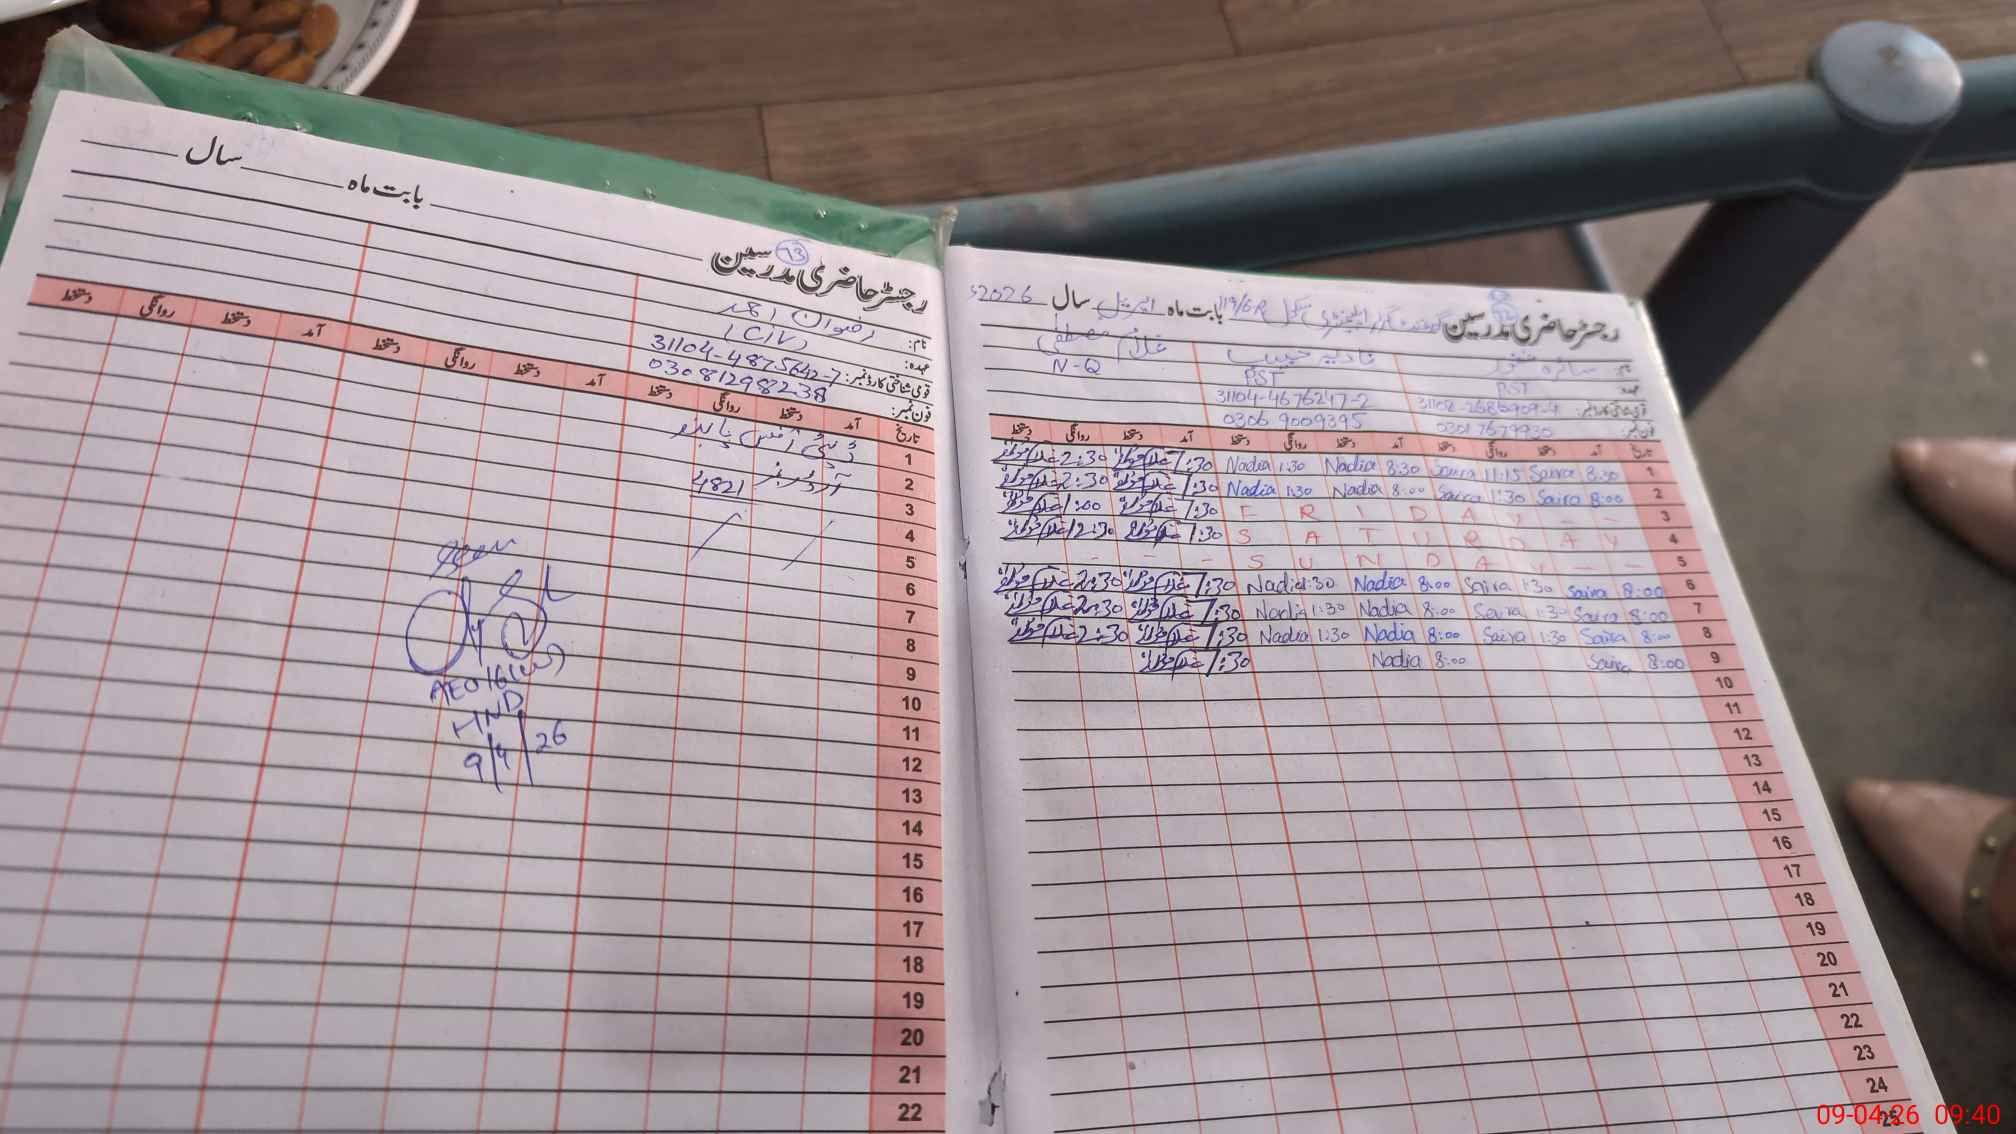 رجسٹر حاضری مدرسین بابت ماہ سال
73
نام: رضوان احمد
عہدہ: (C/IV)
قومی شناختی کارڈ نمبر: 31104-4875642-7
فون نمبر: 03081298238
تاریخ آمد دستخط روانگی دستخط آمد دستخط روانگی دستخط آمد دستخط روانگی دستخط
1 ڈپٹی آفس
2 آرڈر نمبر
3 4821
4
5
6
7
8
9
10
11
12
13
14
15
16
17
18
19
20
21
22
AEO 16
HND
9/4/26
رجسٹر حاضری مدرسین گورنمنٹ گرلز ایلیمنٹری سکول 119/6R بابت ماہ اپریل سال 2026ء
نام: سائرہ نادیہ حبیب غلام مصطفیٰ
عہدہ PST PST N-Q
31102-2686909-4 31104-4676247-2
03017679930 0306 9009395
تاریخ آمد دستخط روانگی دستخط آمد دستخط روانگی دستخط آمد دستخط روانگی دستخط
1 8:30 Saira 11:15 Saira 8:30 Nadia 1:30 Nadia 7:30 غلام مصطفیٰ 2:30 غلام مصطفیٰ
2 8:00 Saira 1:30 Saira 8:00 Nadia 1:30 Nadia 7:30 غلام مصطفیٰ 2:30 غلام مصطفیٰ
3 F R I D A Y - - 7:30 غلام مصطفیٰ 1:00 غلام مصطفیٰ
4 S A T U R D A Y 7:30 غلام مصطفیٰ 12:30 غلام مصطفیٰ
5 - - - S U N D A Y - -
6 8:00 Saira 1:30 Saira 8:00 Nadia 1:30 Nadia 7:30 غلام مصطفیٰ 2:30 غلام مصطفیٰ
7 8:00 Saira 1:30 Saira 8:00 Nadia 1:30 Nadia 7:30 غلام مصطفیٰ 2:30 غلام مصطفیٰ
8 8:00 Saira 1:30 Saira 8:00 Nadia 1:30 Nadia 7:30 غلام مصطفیٰ 2:30 غلام مصطفیٰ
9 8:00 Saira 8:00 Nadia 7:30 غلام مصطفیٰ
10
11
12
13
14
15
16
17
18
19
20
21
22
23
24
25
09-04-26 09:40